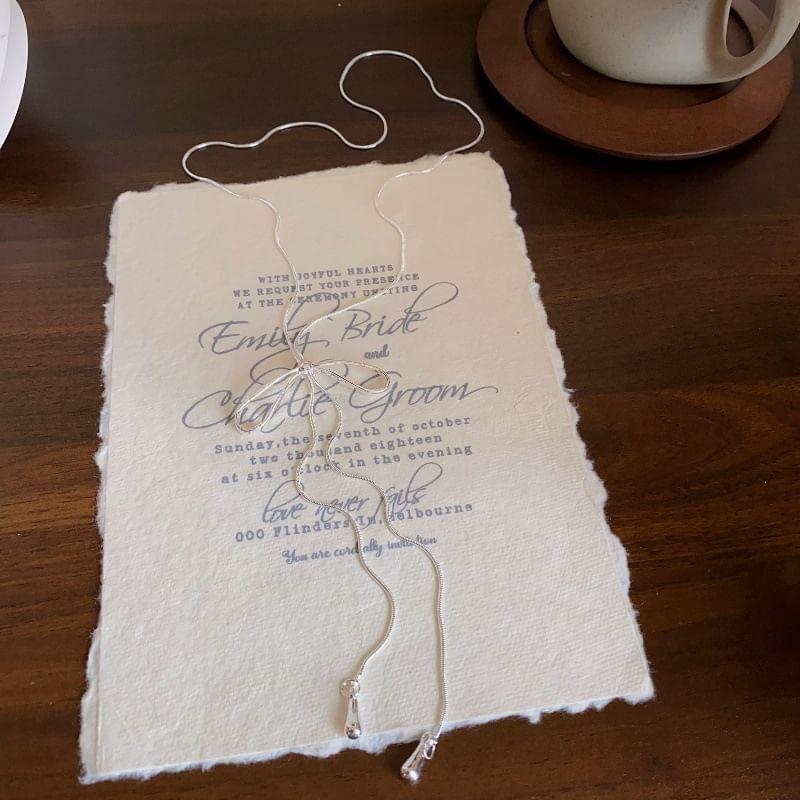 WITH JOYFUL HEARTS
WE REQUEST YOUR PRESENCE
AT THE CEREMONY UNITING
Emily Bride
and
Charlie Groom
Sunday, the seventh of october
two thousand eighteen
at six o'clock in the evening
love never fails
000 Flinders Ln, Melbourne
You are cordially invitation